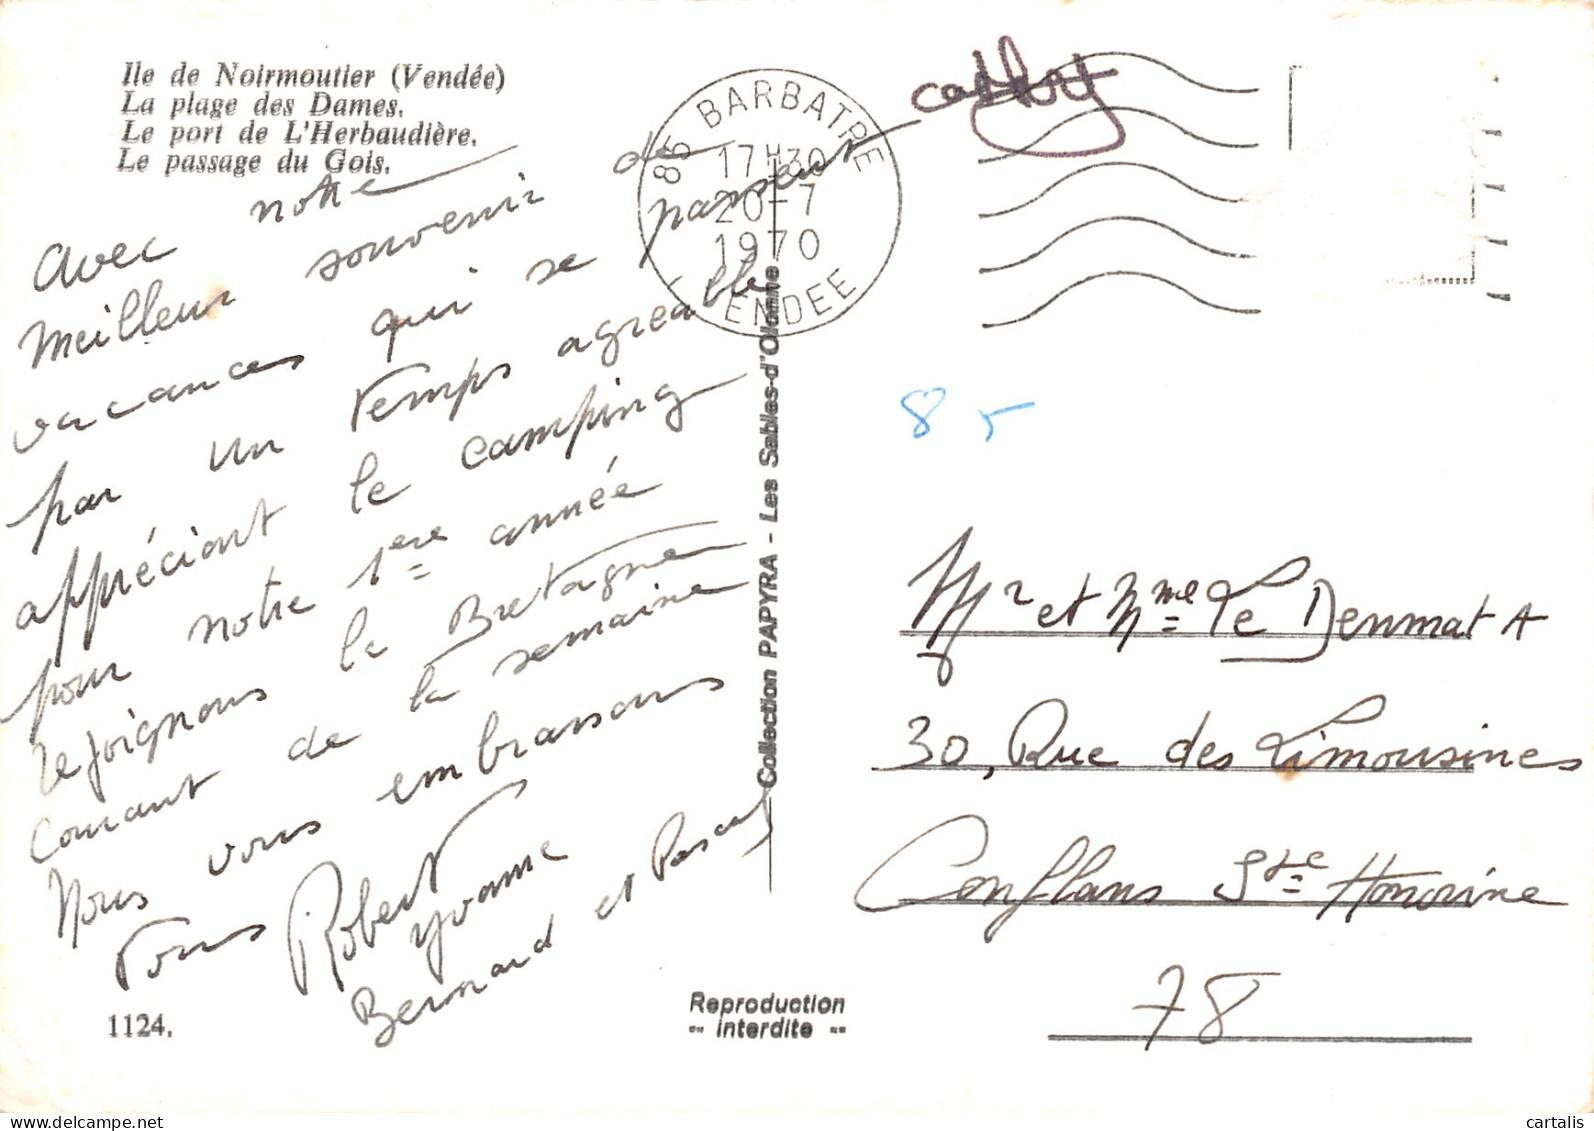 Ile de Noirmoutier (Vendée)
La plage des Dames.
Le port de L'Herbaudière.
Le passage du Gois.
Avec notre
meilleur souvenir de
vacances qui se passent
par un temps agréable
appréciant le camping
pour notre 1ère année
rejoignons la Bretagne
courant de la semaine
Nous vous embrassons
Tous
Robert
Yvonne
Bernard et Pascal
1124.
85 BARBATRE
17H30
20-7
1970
VENDEE
Collection PAPYRA - Les Sables-d'Olonne
Reproduction
-- interdite --
85
Mr et Mme Le Denmat A
30, Rue des Limousines
Conflans Ste Honorine
78
www.delcampe.net
cartalis